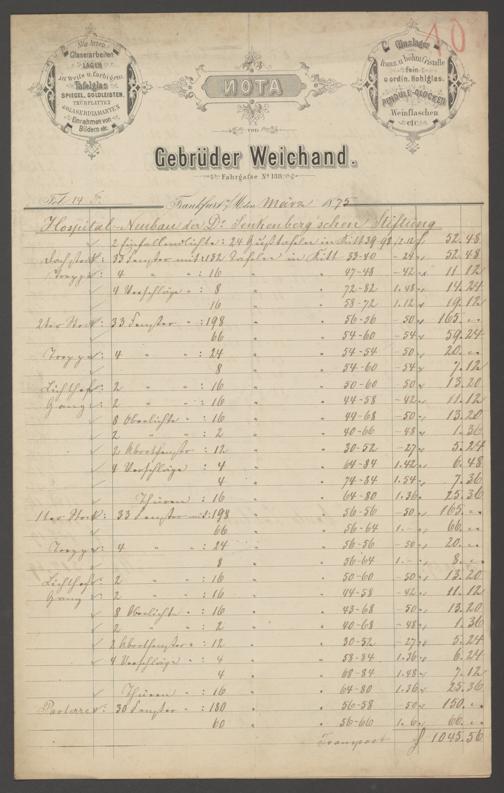 Alle Arten
Glaserarbeiten
LAGER
in weiss u. farbigem
Tafelglas
SPIEGEL, GOLDLEISTEN,
GLASERDIAMANTEN
Einrahmen von
Bildern etc.
NOTA
von
Glaslager
franz. u. böhm. Cristalle
fein
u. ordin. Hohlglas.
PENDULE-GLOCKEN
Weinflaschen
etc.
10
Gebrüder Weichand.
Fahrgasse No. 138.
Frankfurt a/M den März 1875
Hospital-Neubau der Dr. Senkenberg'schen Stiftung
2 Einfallendlichte: 24 Gußtafeln in Kitt 39-92 2.12 f 52.48
Dachstock: 33 Fenster mit: 132 Tafeln in Kitt 33-40 -24 52.48
Treppe: 4 " " : 16 " " 47-48 -42 11.12
4 Verschläge " : 8 " " 72-82 1.48 14.24
16 " " 58-72 1.12 19.12
2ter Stock: 33 Fenster " : 198 " " 56-56 -50 165. "
66 " " 54-60 -54 59.24
Treppe: 4 " " : 24 " " 54-54 -50 20. "
8 " " 54-60 -54 7.12
Lichthof: 2 " " : 16 " " 50-60 -50 13.20
Gang: 2 " " : 16 " " 44-58 -42 11.12
8 Oberlichte " : 16 " " 49-68 -50 13.20
2 " " : 2 " " 40-66 -48 1.36
2 Abortfenster " : 12 " " 30-52 -27 5.24
4 Verschläge " : 4 " " 64-84 1.42 6.48
4 " " 74-84 1.54 7.36
Thüren " : 16 " " 64-80 1.36 25.36
1ter Stock: 33 Fenster mit: 198 " " 56-56 -50 165. "
66 " " 56-64 1. - 66. "
Treppe: 4 " " : 24 " " 56-56 -50 20. "
8 " " 56-64 1. - 8. "
Lichthof: 2 " " : 16 " " 50-60 -50 13.20
Gang: 2 " " : 16 " " 44-58 -42 11.12
8 Oberlichte " : 16 " " 43-68 -50 13.20
2 " " : 2 " " 40-68 -48 1.36
2 Abortfenster " : 12 " " 30-52 -27 5.24
4 Verschläge " : 4 " " 58-84 1.36 6.24
4 " " 68-84 1.48 7.12
Thüren " : 16 " " 64-80 1.36 25.36
Parterre: 30 Fenster " : 180 " " 56-58 -50 150. "
60 " " 56-66 1.6 66. "
Transport f 1045.56